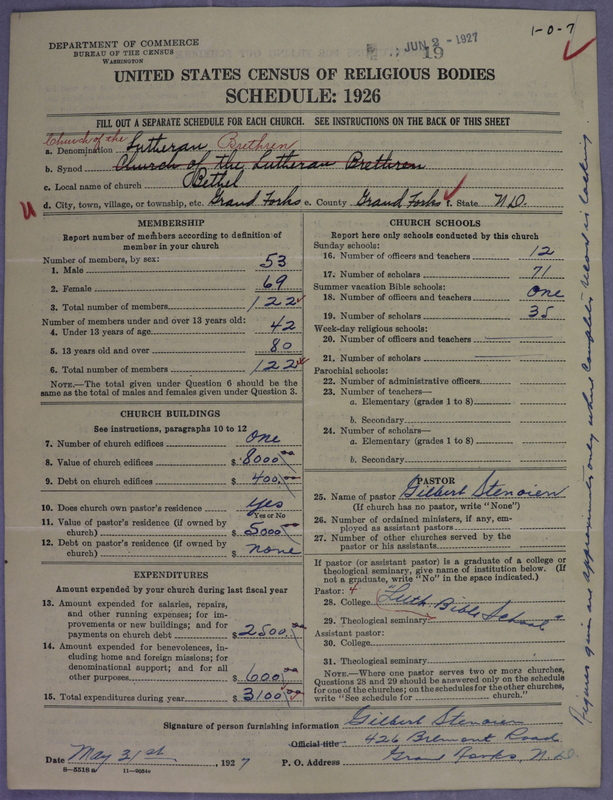 1-0-7
DEPARTMENT OF COMMERCE
BUREAU OF THE CENSUS
WASHINGTON
JUN 2 - 1927
19
UNITED STATES CENSUS OF RELIGIOUS BODIES
SCHEDULE: 1926
FILL OUT A SEPARATE SCHEDULE FOR EACH CHURCH. SEE INSTRUCTIONS ON THE BACK OF THIS SHEET
Church of the
a. Denomination Lutheran Brethren
b. Synod Church of the Lutheran Brethren
c. Local name of church Bethel
d. City, town, village, or township, etc. Grand Forks e. County Grand Forks f. State N.D.
MEMBERSHIP
Report number of members according to definition of
member in your church
Number of members, by sex:
1. Male 53
2. Female 69
3. Total number of members 122
Number of members under and over 13 years old:
4. Under 13 years of age 42
5. 13 years old and over 80
6. Total number of members 122
NOTE.—The total given under Question 6 should be the
same as the total of males and females given under Question 3.
CHURCH BUILDINGS
See instructions, paragraphs 10 to 12
7. Number of church edifices one
8. Value of church edifices $ 8000.00
9. Debt on church edifices $ 400.00
10. Does church own pastor's residence yes
Yes or No
11. Value of pastor's residence (if owned by
church) $ 5000.00
12. Debt on pastor's residence (if owned by
church) $ none
EXPENDITURES
Amount expended by your church during last fiscal year
13. Amount expended for salaries, repairs,
and other running expenses; for im-
provements or new buildings; and for
payments on church debt $ 2500.00
14. Amount expended for benevolences, in-
cluding home and foreign missions; for
denominational support; and for all
other purposes $ 600.00
15. Total expenditures during year $ 3100.00
CHURCH SCHOOLS
Report here only schools conducted by this church
Sunday schools:
16. Number of officers and teachers 12
17. Number of scholars 71
Summer vacation Bible schools:
18. Number of officers and teachers one
19. Number of scholars 35
Week-day religious schools:
20. Number of officers and teachers
21. Number of scholars
Parochial schools:
22. Number of administrative officers
23. Number of teachers—
a. Elementary (grades 1 to 8)
b. Secondary
24. Number of scholars—
a. Elementary (grades 1 to 8)
b. Secondary
PASTOR
25. Name of pastor Gilbert Stenoien
(If church has no pastor, write "None")
26. Number of ordained ministers, if any, em-
ployed as assistant pastors
27. Number of other churches served by the
pastor or his assistants
If pastor (or assistant pastor) is a graduate of a college or
theological seminary, give name of institution below. (If
not a graduate, write "No" in the space indicated.)
Pastor:
28. College "Luth. Bible School"
29. Theological seminary
Assistant pastor:
30. College
31. Theological seminary
NOTE.—Where one pastor serves two or more churches,
Questions 28 and 29 should be answered only on the schedule
for one of the churches; on the schedules for the other churches,
write "See schedule for church."
Signature of person furnishing information Gilbert Stenoien
Official title 426 Belmont Road
Date May 31st, 1927 P. O. Address Grand Forks, N.D.
8-5518 a 11-9051a
Figures given are approximate only where complete record is lacking